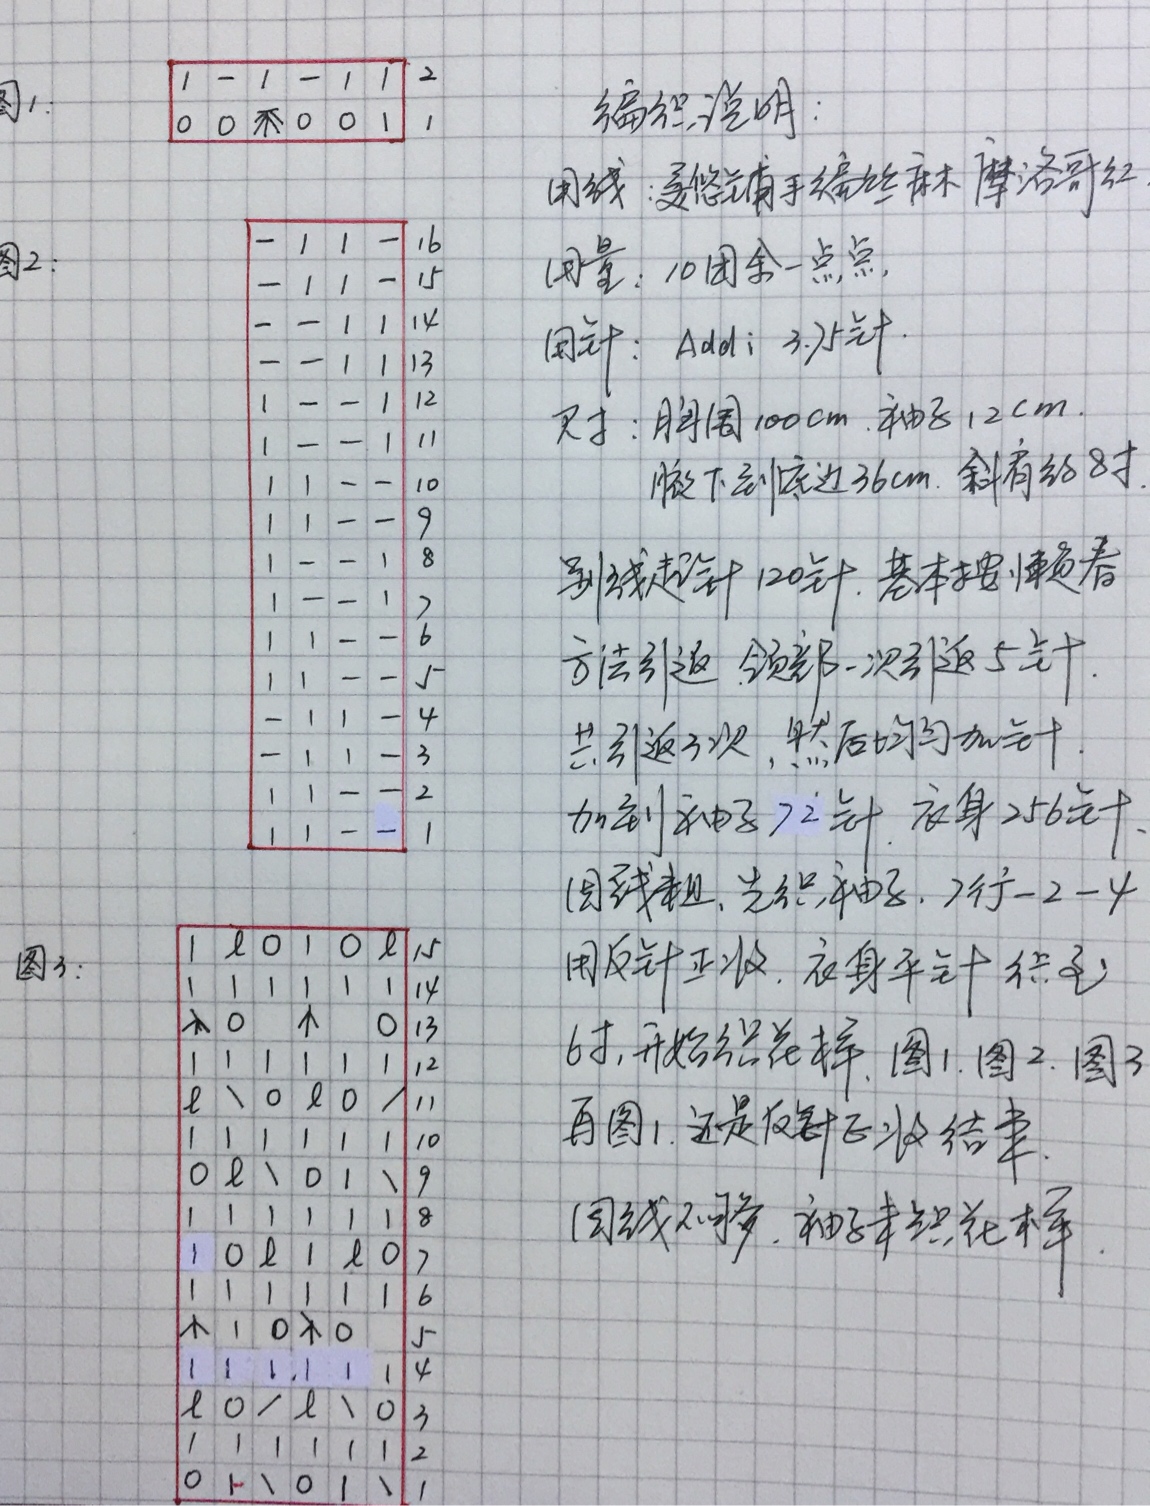 图1:
1 - 1 - 1 1 2
0 0 0 0 1 1
图2:
- 1 1 - 16
- 1 1 - 15
- - 1 1 14
- - 1 1 13
1 - - 1 12
1 - - 1 11
1 1 - - 10
1 1 - - 9
1 - - 1 8
1 - - 1 7
1 1 - - 6
1 1 - - 5
- 1 1 - 4
- 1 1 - 3
1 1 - - 2
1 1 - - 1
图3:
1 ℓ 0 1 0 ℓ 15
1 1 1 1 1 1 14
木 0 ↑ 0 13
1 1 1 1 1 1 12
ℓ \ 0 ℓ 0 / 11
1 1 1 1 1 1 10
0 ℓ \ 0 1 \ 9
1 1 1 1 1 1 8
1 0 ℓ 1 ℓ 0 7
1 1 1 1 1 1 6
木 1 0 木 0 5
1 1 1 1 1 1 4
ℓ 0 / ℓ \ 0 3
1 1 1 1 1 1 2
0 \ 0 1 \ 1
编织说明:
用线:手编丝麻 摩洛哥红
用量:10团余一点点,
用针: Addi 3.75针.
尺寸:胸围100cm.袖子12cm.
腋下到底边36cm. 斜肩织8寸.
别线起针120针.基本按懒春
方法引返 领部一次引返5针.
共引返3次,然后均匀加针.
加到袖子72针.衣身256针.
因线粗、先织袖子.7行-2-4
用反针正收.衣身平针织到
6寸,开始织花样、图1.图2.图3
再图1.还是反针正收结束.
因线不够.袖子未织花样.